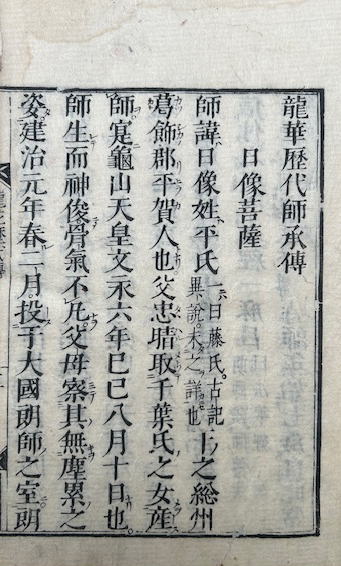 龍華歷代師承傳
日像菩薩
師諱日像姓平氏一曰藤氏。古記異說。未之詳也下之総州
葛飾郡平賀人也父忠晴取千葉氏之女産
師寔龜山天皇文永六年己巳八月十日也。
師生而神俊骨氣不凡父母察其無塵累之
姿建治元年春二月。投于大國朗師之室朗